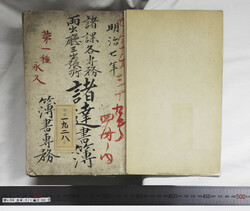 明治七年
諸課各専務
両出廳
諸達書簿
第一種
永久
一九二八
簿書専務
四冊ノ内